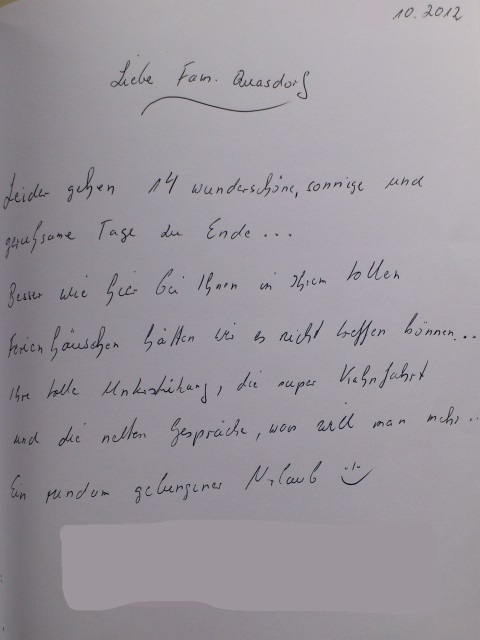 10.2012
Liebe Fam. Quasdorf
Leider gehen 14 wunderschöne, sonnige und
geruhsame Tage zu Ende...
Besser wie hier bei Ihnen in Ihrem tollen
Ferienhäuschen hätten wir es nicht treffen können...
Ihre tolle Unterstützung, die super Kahnfahrt
und die netten Gespräche, was will man mehr...
Ein rundum gelungener Urlaub